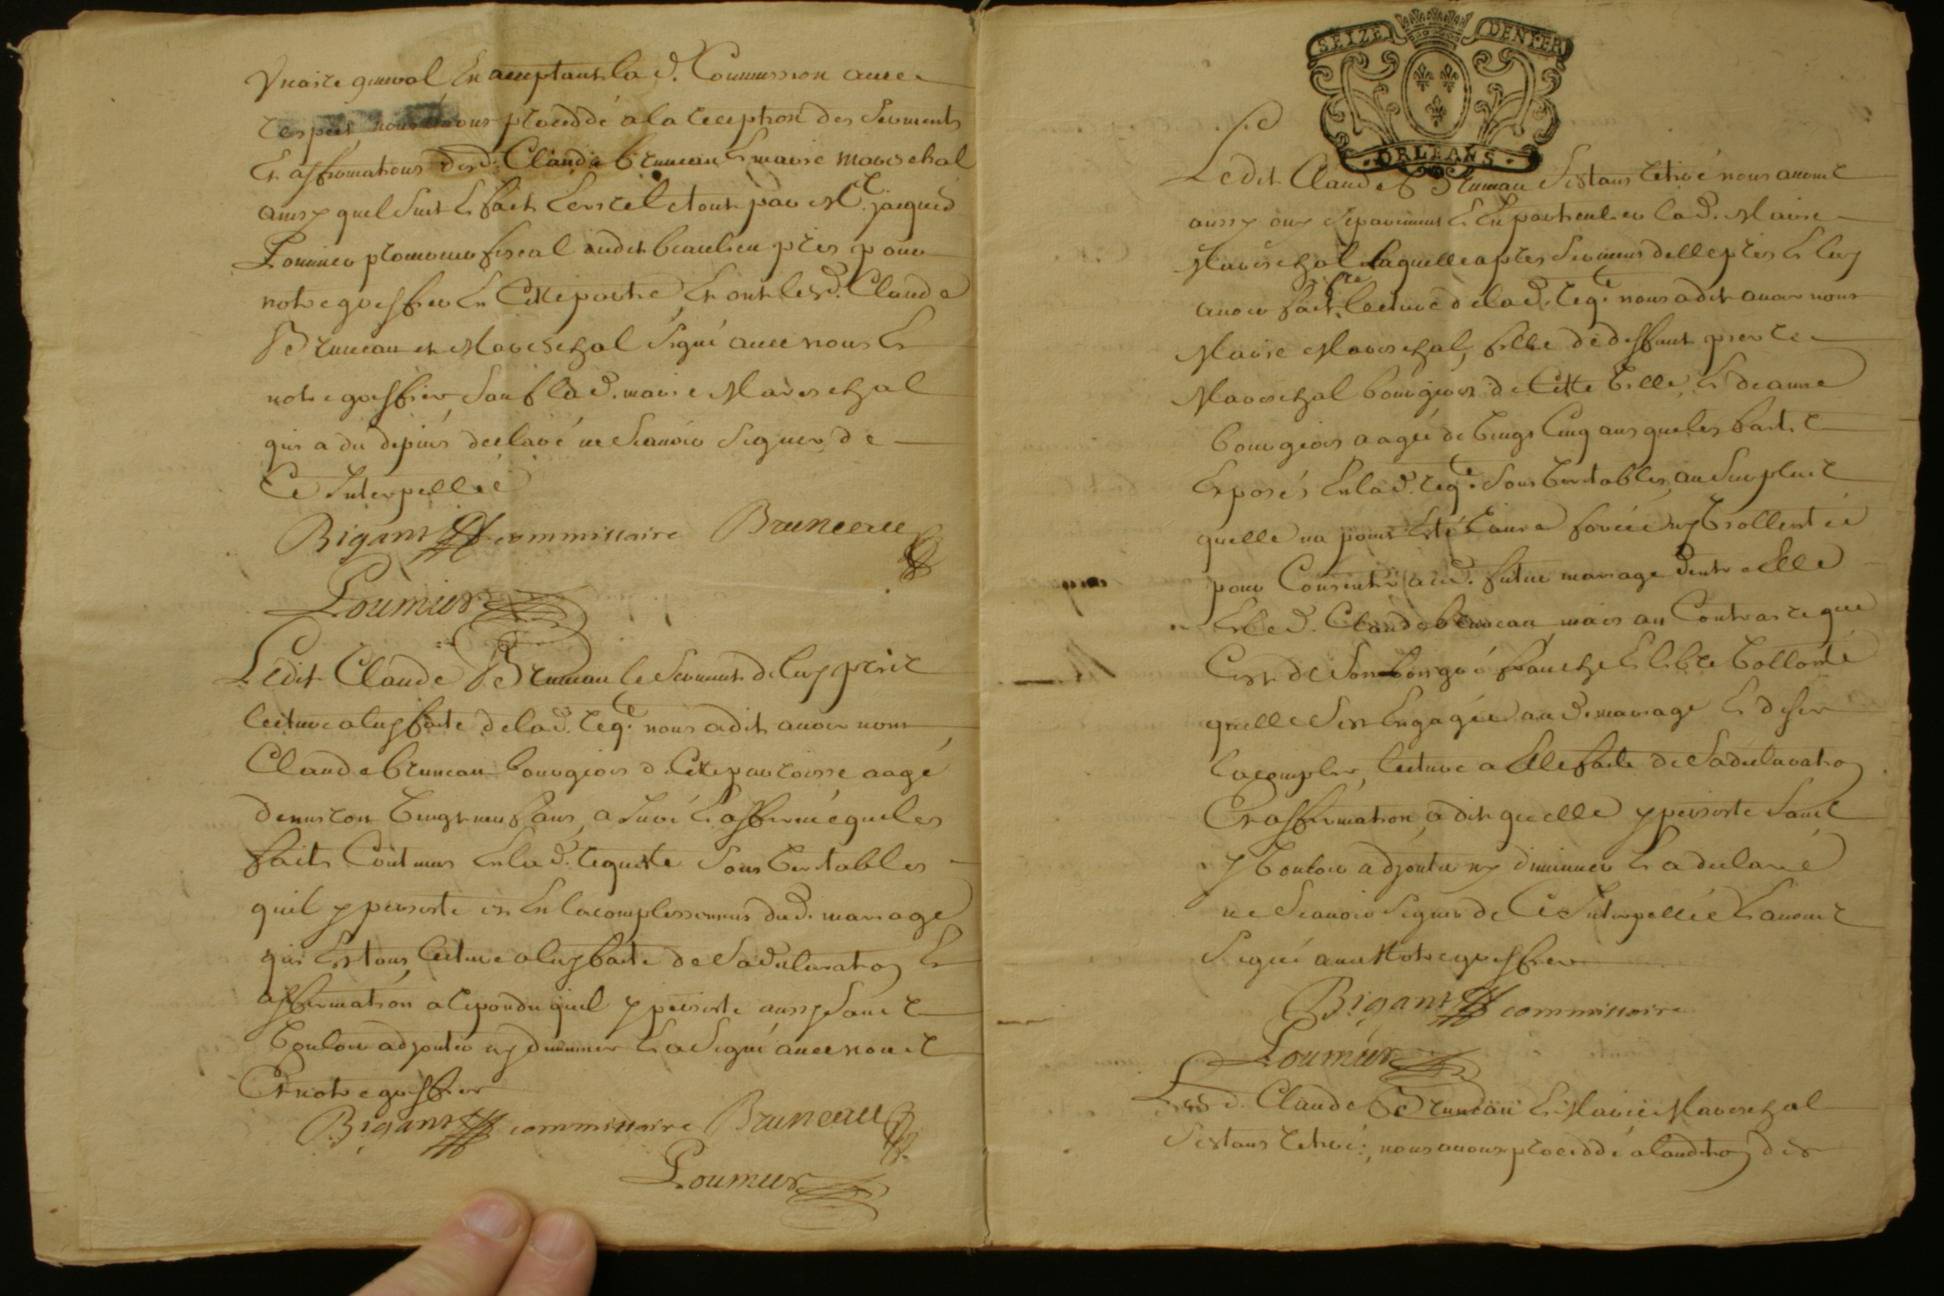 Vicaire general En acceptant lad. Commission avec
respect nous avons procedé a la reception des Serments
Et affirmations desd. Claude bruneau Et marie Mareschal
ainsy quel Suit Le fait Escrit Le tout par Me. jacques
Loumier procureur fiscal dudit beaulieu pris pour
notre greffier En Cette partie, Et ont lesd. Claude
Bruneau et Mareschal Signé avec nous Et
notre greffier, Sauf lad. marie Mareschal
qui a du depuis declaré ne Scavoir Signer de
Ce Interpellée
Bigant commissaire Bruneau
Loumier
Ledit Claude Bruneau le Serment de luy pris
lecture a luy faite de lad. reqte. nous a dit avoir nom
Claude bruneau bourgeois de Cette parroisse aagé
denviron Vingt neuf ans, a Juré Et affirmé que les
faits Contenus En lad. requeste Sont Veritables
quil y persiste et En lacomplissement dud. mariage
lecture a luy faite de Sa declaration Et
affirmation a repondu quil y persiste aussy Sans
Vouloir adjouter ny diminuer Et a Signé avec nous
Et notre greffier
Bigant commissaire Bruneau
Loumier
SEIZE DENIER
ORLEANS
Ledit Claude Bruneau Sestant retiré nous avons
aussy ouy Separement Et En particulier lad. Marie
Mareschal laquelle apres Serment delle pris Et luy
avoir fait fre. lecture de lad. reqte. nous a dit avoir nom
Marie Mareschal, fille de deffunt pierre
Mareschal bourgeois de Cette Ville, Et de anne
bourgeois aagée de Vingt Cinq ans que les faits
Exposés En lad. reqte. Sont Veritables, au Surplus
quelle na point Esté Induite forcée ny Viollentée
pour Consentir aud. futur mariage dentre Elle
Et led. Claude bruneau mais au Contraire que
Cest de Son bon gré franche Et libre Vollonté
quelle Sest Engagée aud. mariage Et desire
lacomplir, lecture a Elle faite de Sa declaration
Et affirmation, a dit quelle y persiste Sans
y Vouloir adjouter ny diminuer Et a declaré
ne Scavoir Signer de Ce Interpellée Et avons
Signé avec Notre greffier
Bigant commissaire
Loumier
Lesd. Claude Bruneau Et Marie Mareschal
Sestans retirés, nous avons procedé a laudition des